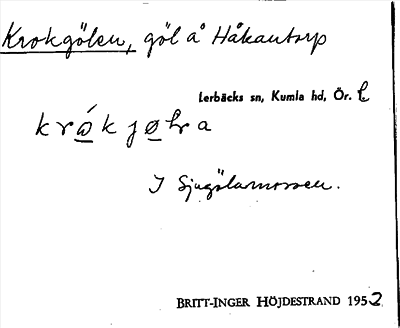 Krokgölen, göl å Håkantorp
Lerbäcks sn, Kumla hd, Ör. l
I Sjugölamossen.
BRITT-INGER HÖJDESTRAND 1952